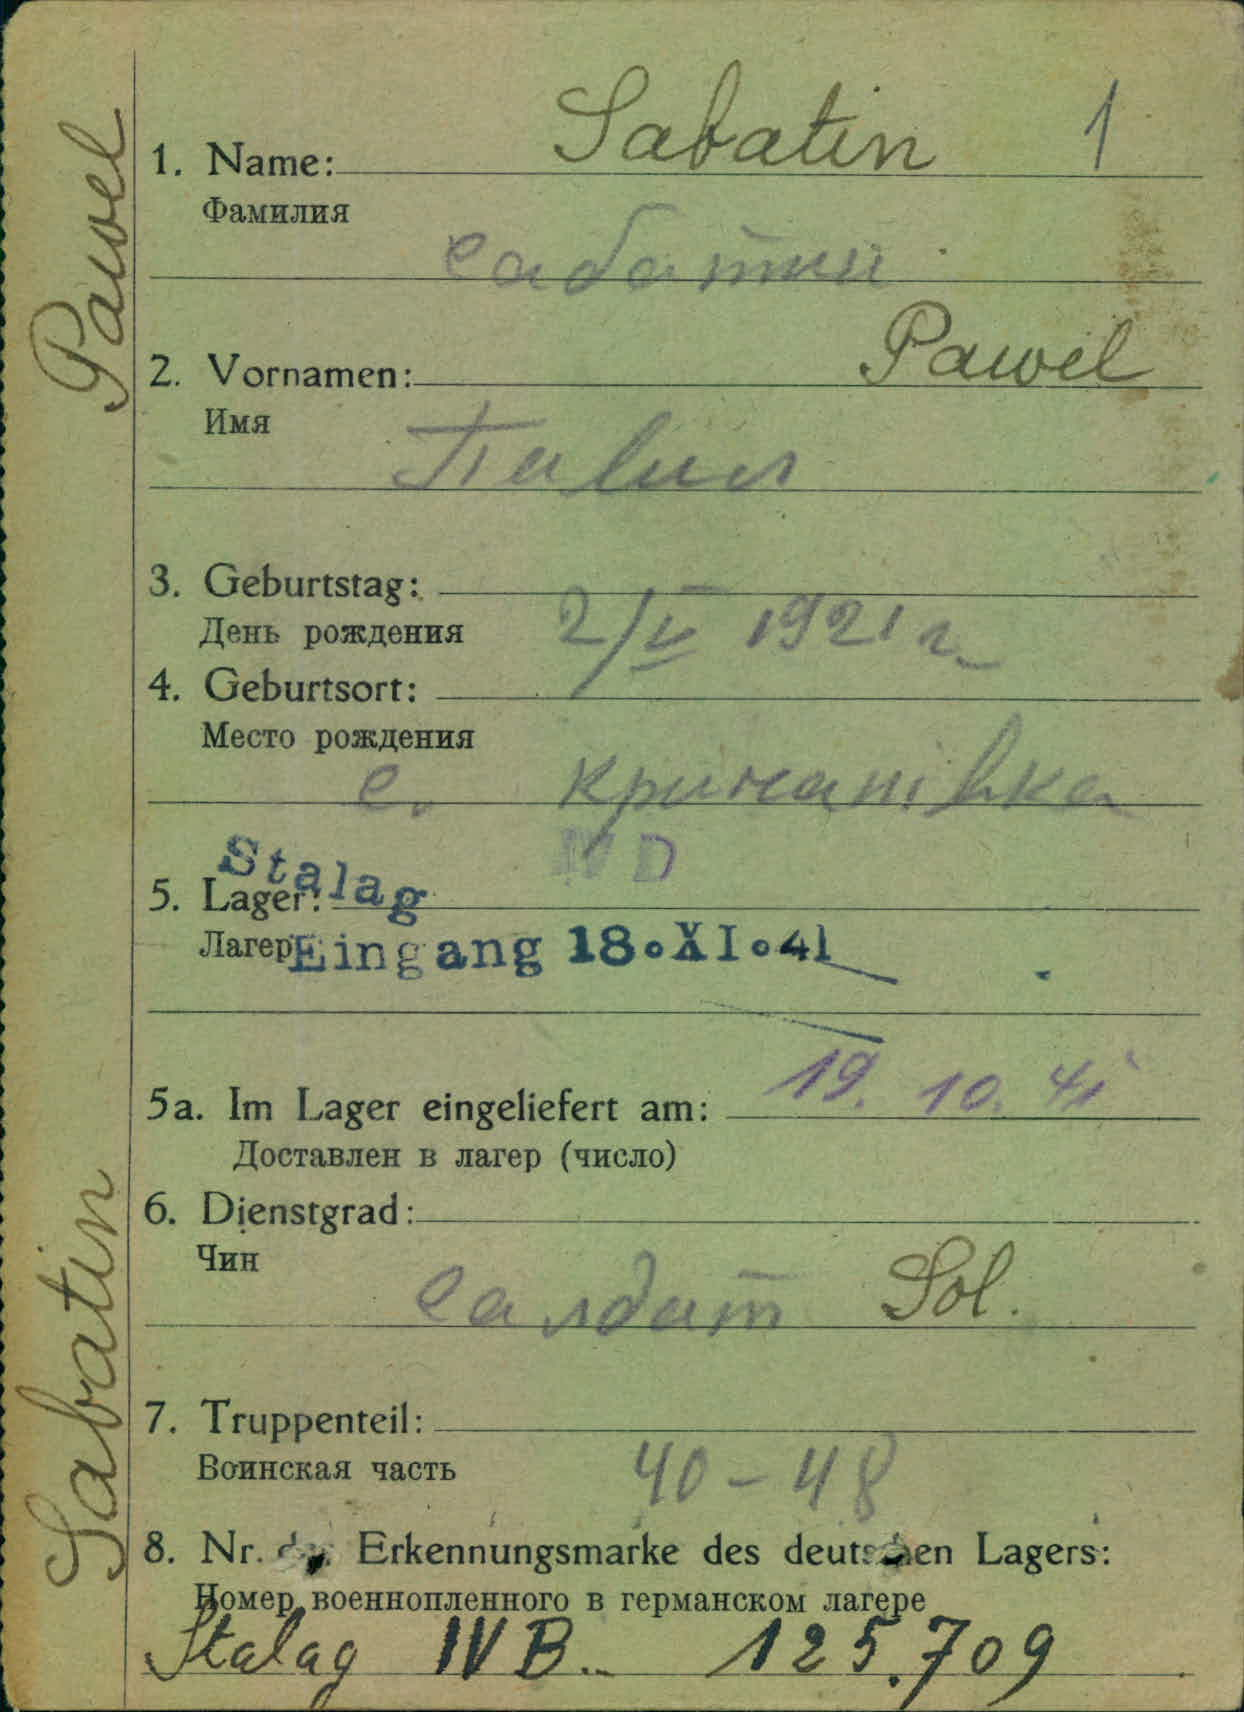 Pawel
Sabatin
Sabatin 1
1. Name:
Фамилия
сабатин
2. Vornamen: Pawel
Имя
Павил
3. Geburtstag:
День рождения 2/V 1921 г.
4. Geburtsort:
Место рождения
с.
Stalag IV D
5. Lager:
Лагерь Eingang 18.XI.41
5a. Im Lager eingeliefert am: 19. 10. 41
Доставлен в лагер (число)
6. Dienstgrad:
Чин
салдат Sol.
7. Truppenteil:
Воинская часть 40-48
8. Nr. der Erkennungsmarke des deutschen Lagers:
Номер военнопленного в германском лагере
Stalag IV B. 125.709